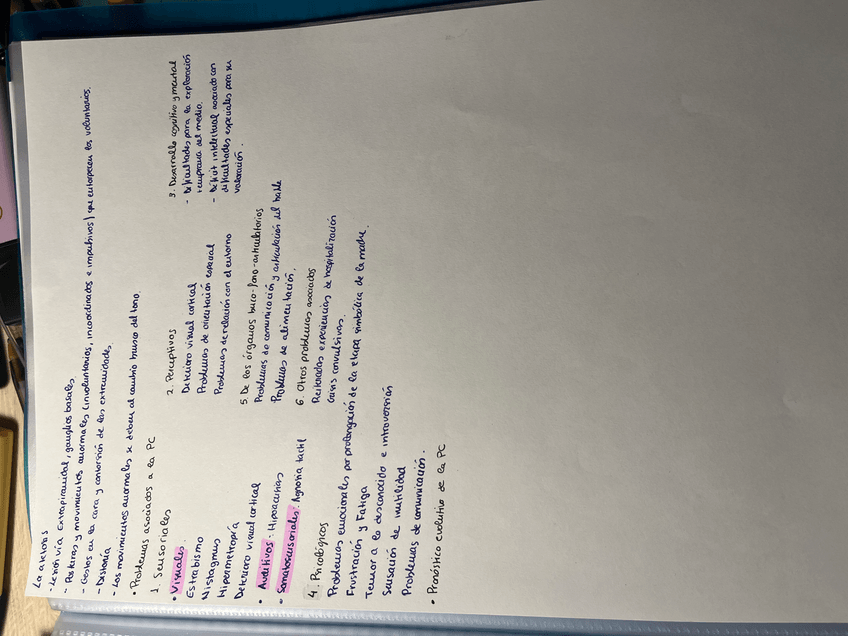 La atetosis
- Lesión vía Extrapiramidal, ganglios basales
- Posturas y movimientos anormales (involuntarios, incoordinados e impulsivos) que entorpecen los voluntarios.
- Gestos en la cara y contorsión de las extremidades.
- Distonía
- Los movimientos anormales se deben al cambio brusco del tono.
• Problemas asociados a la PC
1. Sensoriales
• Visuales:
Estrabismo
Nistagmus
Hipermetropía
Deterioro visual cortical
• Auditivos: Hipoacusias
• Somatosensoriales: Agnosia táctil
2. Perceptivos
Deterioro visual cortical
Problemas de orientación espacial
Problemas de relación con el entorno
3. Desarrollo cognitivo y mental
- Dificultades para la exploración
temprana del medio.
- Déficit intelectual asociado con
dificultades especiales para su
valoración.
4. Psicológicos
Problemas emocionales por prolongación de la etapa simbiótica de la madre.
Frustración y Fatiga
Temor a lo desconocido e introversión
Sensación de inutilidad
Problemas de comunicación.
5. De los órganos buco-fono-articulatorios
Problemas de comunicación y articulación del habla
Problemas de alimentación.
6. Otros problemas asociados
Reiteradas experiencias de hospitalización
Crisis convulsivas.
• Pronóstico evolutivo de la PC